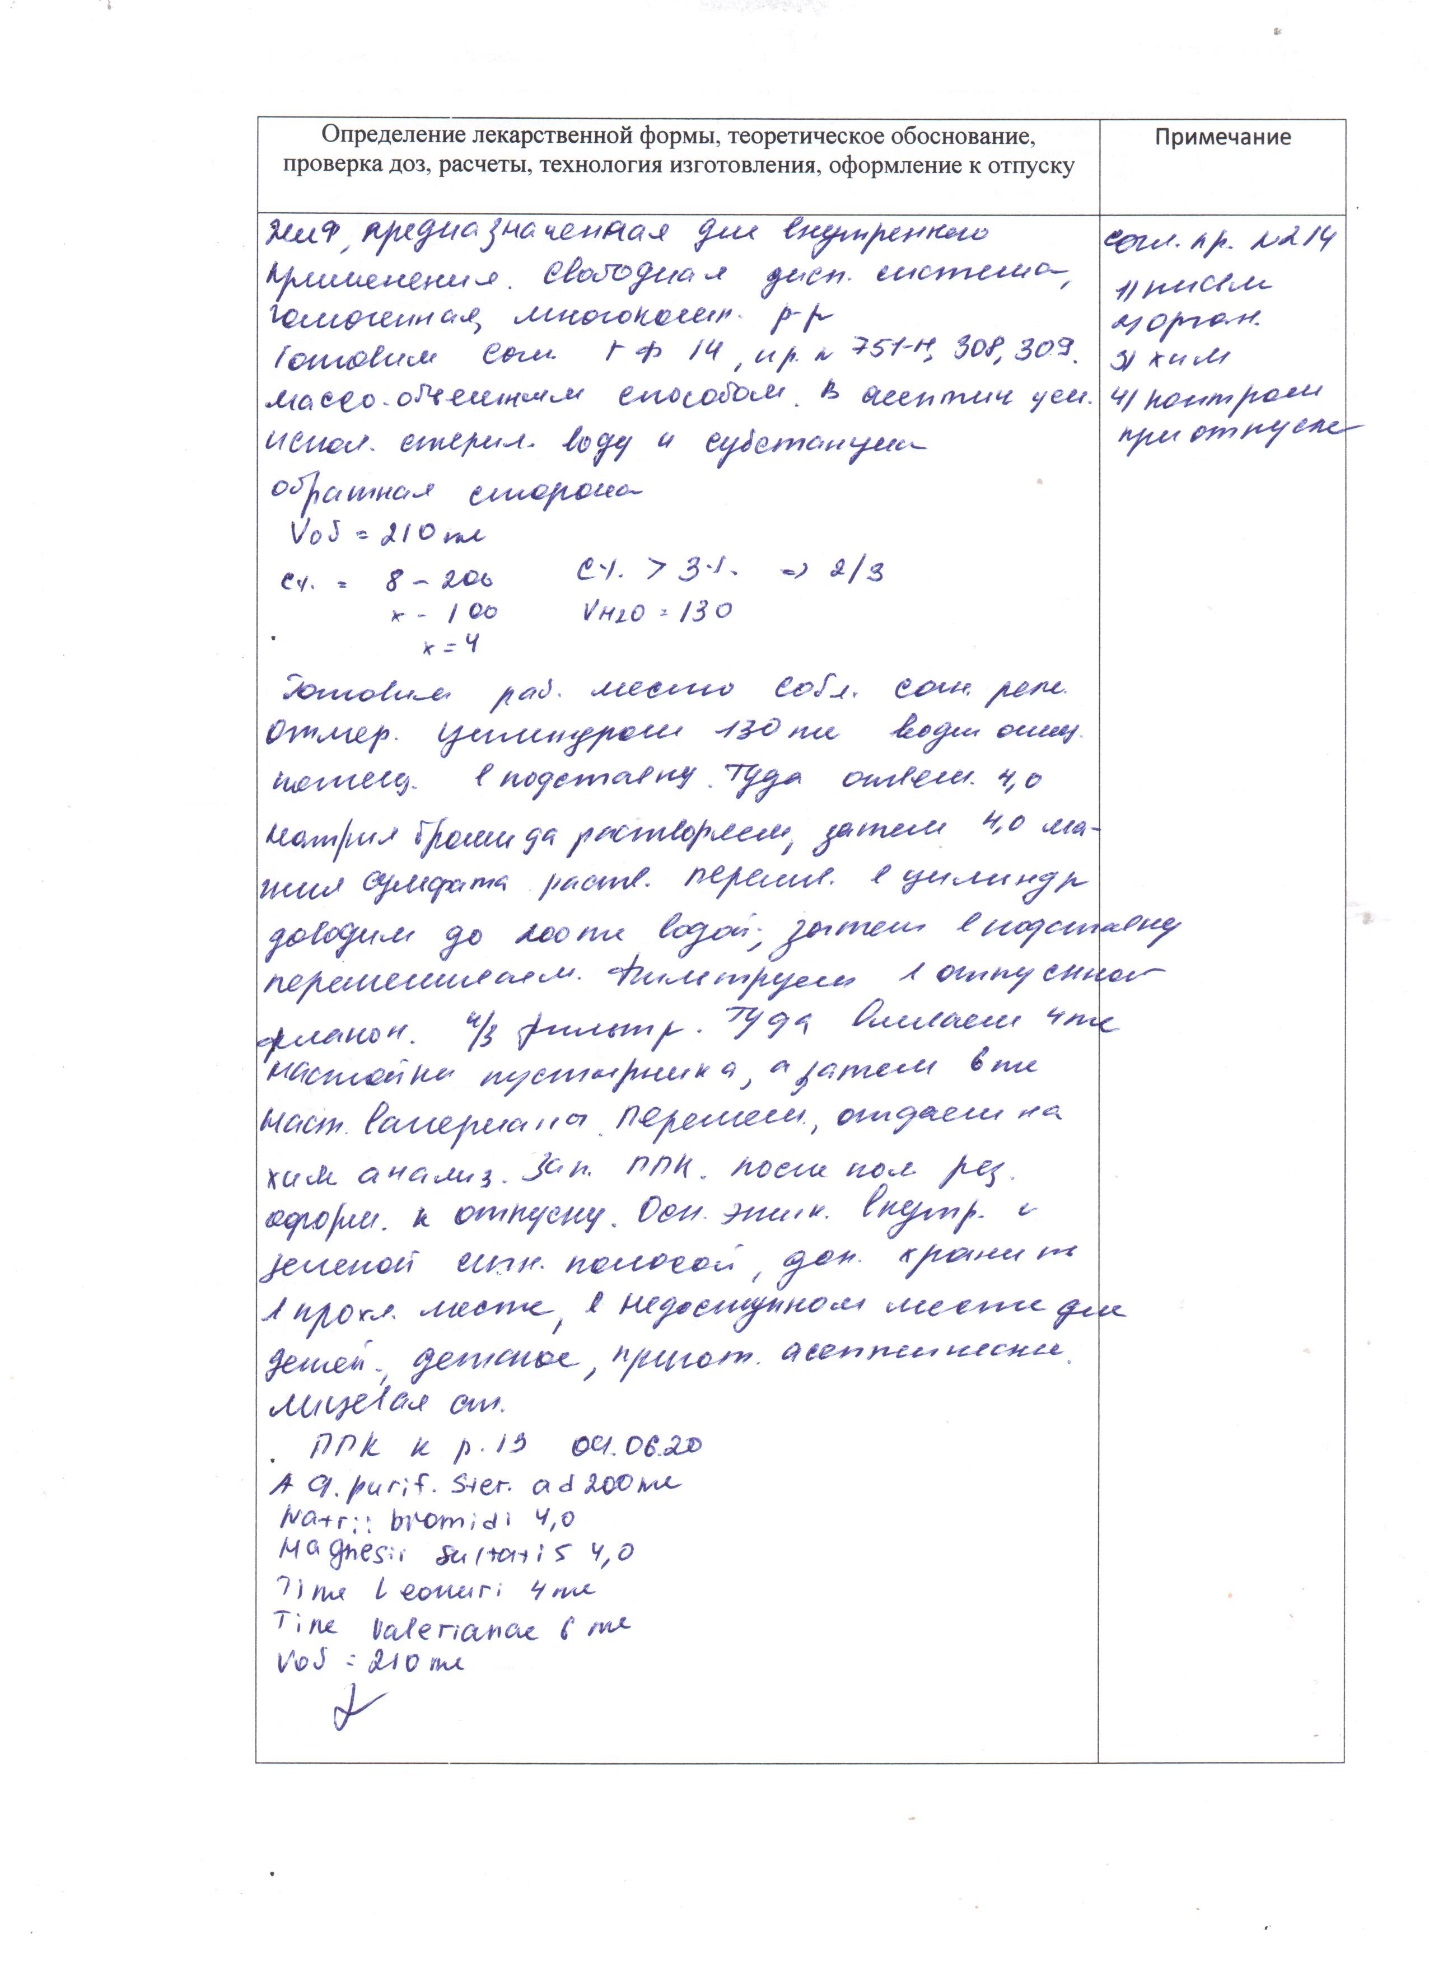 Определение лекарственной формы, теоретическое обоснование,
проверка доз, расчеты, технология изготовления, оформление к отпуску
Примечание
ЖЛФ, предназначенная для внутреннего
применения. Свободная дисп. система,
гомогенная, многокомп. р-р
Готовим согл. ГФ 14, пр. № 751-Н, 308, 309.
массо-объемным способом. В асептич усл.
испол. стерил. воду и субстанции
обратная сторона
Vоб = 210 мл
C% = 8 - 200
x - 100
x = 4
C% > 3%. => 2/3
VH2O = 130
Готовим раб. место собл. сан. реж.
Отмер. цилиндром 130 мл воды очищ.
помещ. в подставку. Туда отвеш. 4,0
натрия бромида растворяем, затем 4,0 ма-
гния сульфата раств. перелив. в цилиндр
доводим до 200 мл водой, затем в подставку
перемешиваем. Фильтруем в отпускной
флакон. ч/з фильтр. Туда вливаем 4 мл
настойки пустырника, а затем 6 мл
наст. валерианы. Перемеш., отдаем на
хим анализ. Зап. ППК. после пол рез.
оформ. к отпуску. Осн. этик. Внутр. с
зеленой сигн. полосой, доп. хранить
в прохл. месте, в недоступном месте для
детей., детское, пригот. асептически.
Лицевая ст.
ППК к р. 13 04.06.20
Aq. purif. Ster. ad 200 мл
Natrii bromidi 4,0
Magnesii sulfatis 4,0
Tinc Leonuri 4 мл
Tinc Valerianae 6 мл
Vоб = 210 мл
согл. пр. №214
1) письм
2) орган.
3) хим
4) контроль
при отпуске